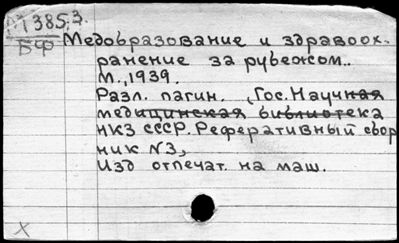 М 1385,3.
БФ
Медобразование и здравоох-
ранение за рубежом..
М., 1939.
Разл. пагин. (Гос. Научная
медицинская библиотека
НКЗ СССР. Реферативный сбор
ник №3,
Изд отпечат. на маш.
X